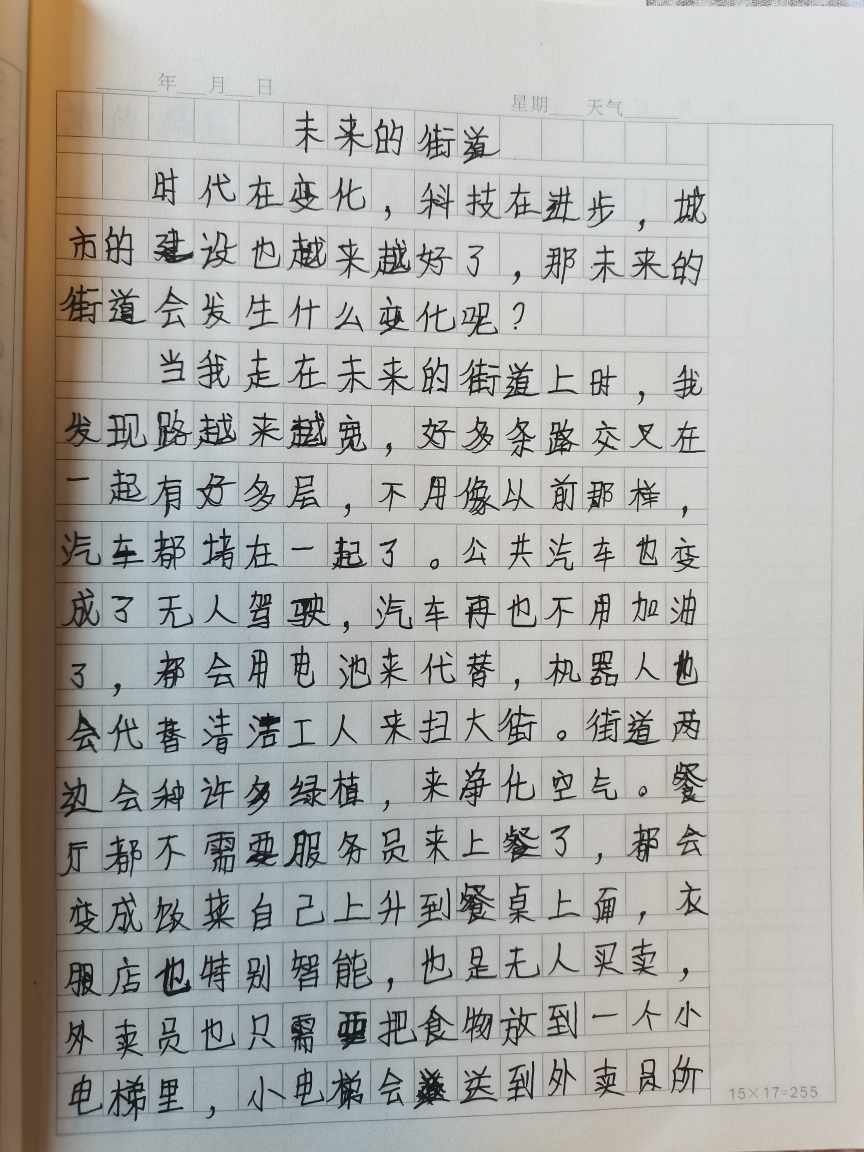 年 月 日
星期 天气
未来的街道
时代在变化，科技在进步，城
市的建设也越来越好了，那未来的
街道会发生什么变化呢？
当我走在未来的街道上时，我
发现路越来越宽，好多条路交叉在
一起有好多层，不用像以前那样，
汽车都堵在一起了。公共汽车也变
成了无人驾驶，汽车再也不用加油
了，都会用电池来代替，机器人也
会代替清洁工人来扫大街。街道两
边会种许多绿植，来净化空气。餐
厅都不需要服务员来上餐了，都会
变成饭菜自己上升到餐桌上面，衣
服店也特别智能，也是无人买卖，
外卖员也只需要把食物放到一个小
电梯里，小电梯会送到外卖员所
15×17=255